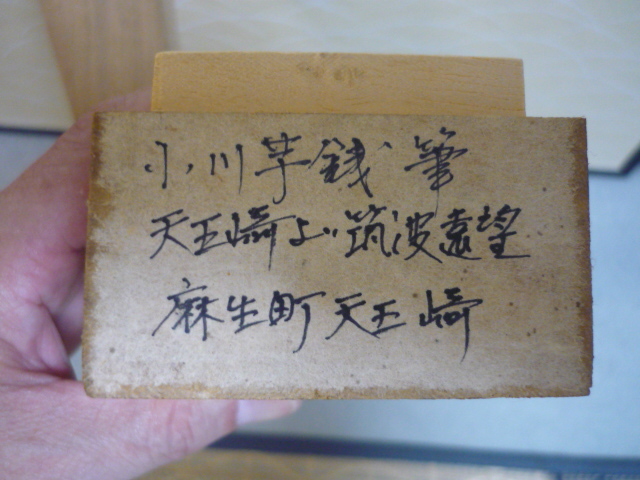 小川芋銭筆
天王崎より筑波遠望
麻生町天王崎